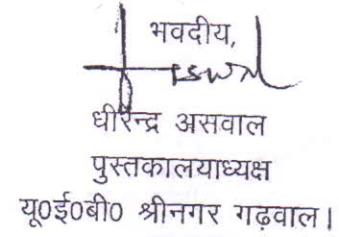 भवदीय,
धीरेन्द्र असवाल
पुस्तकालयाध्यक्ष
यू0ई0बी0 श्रीनगर गढ़वाल।